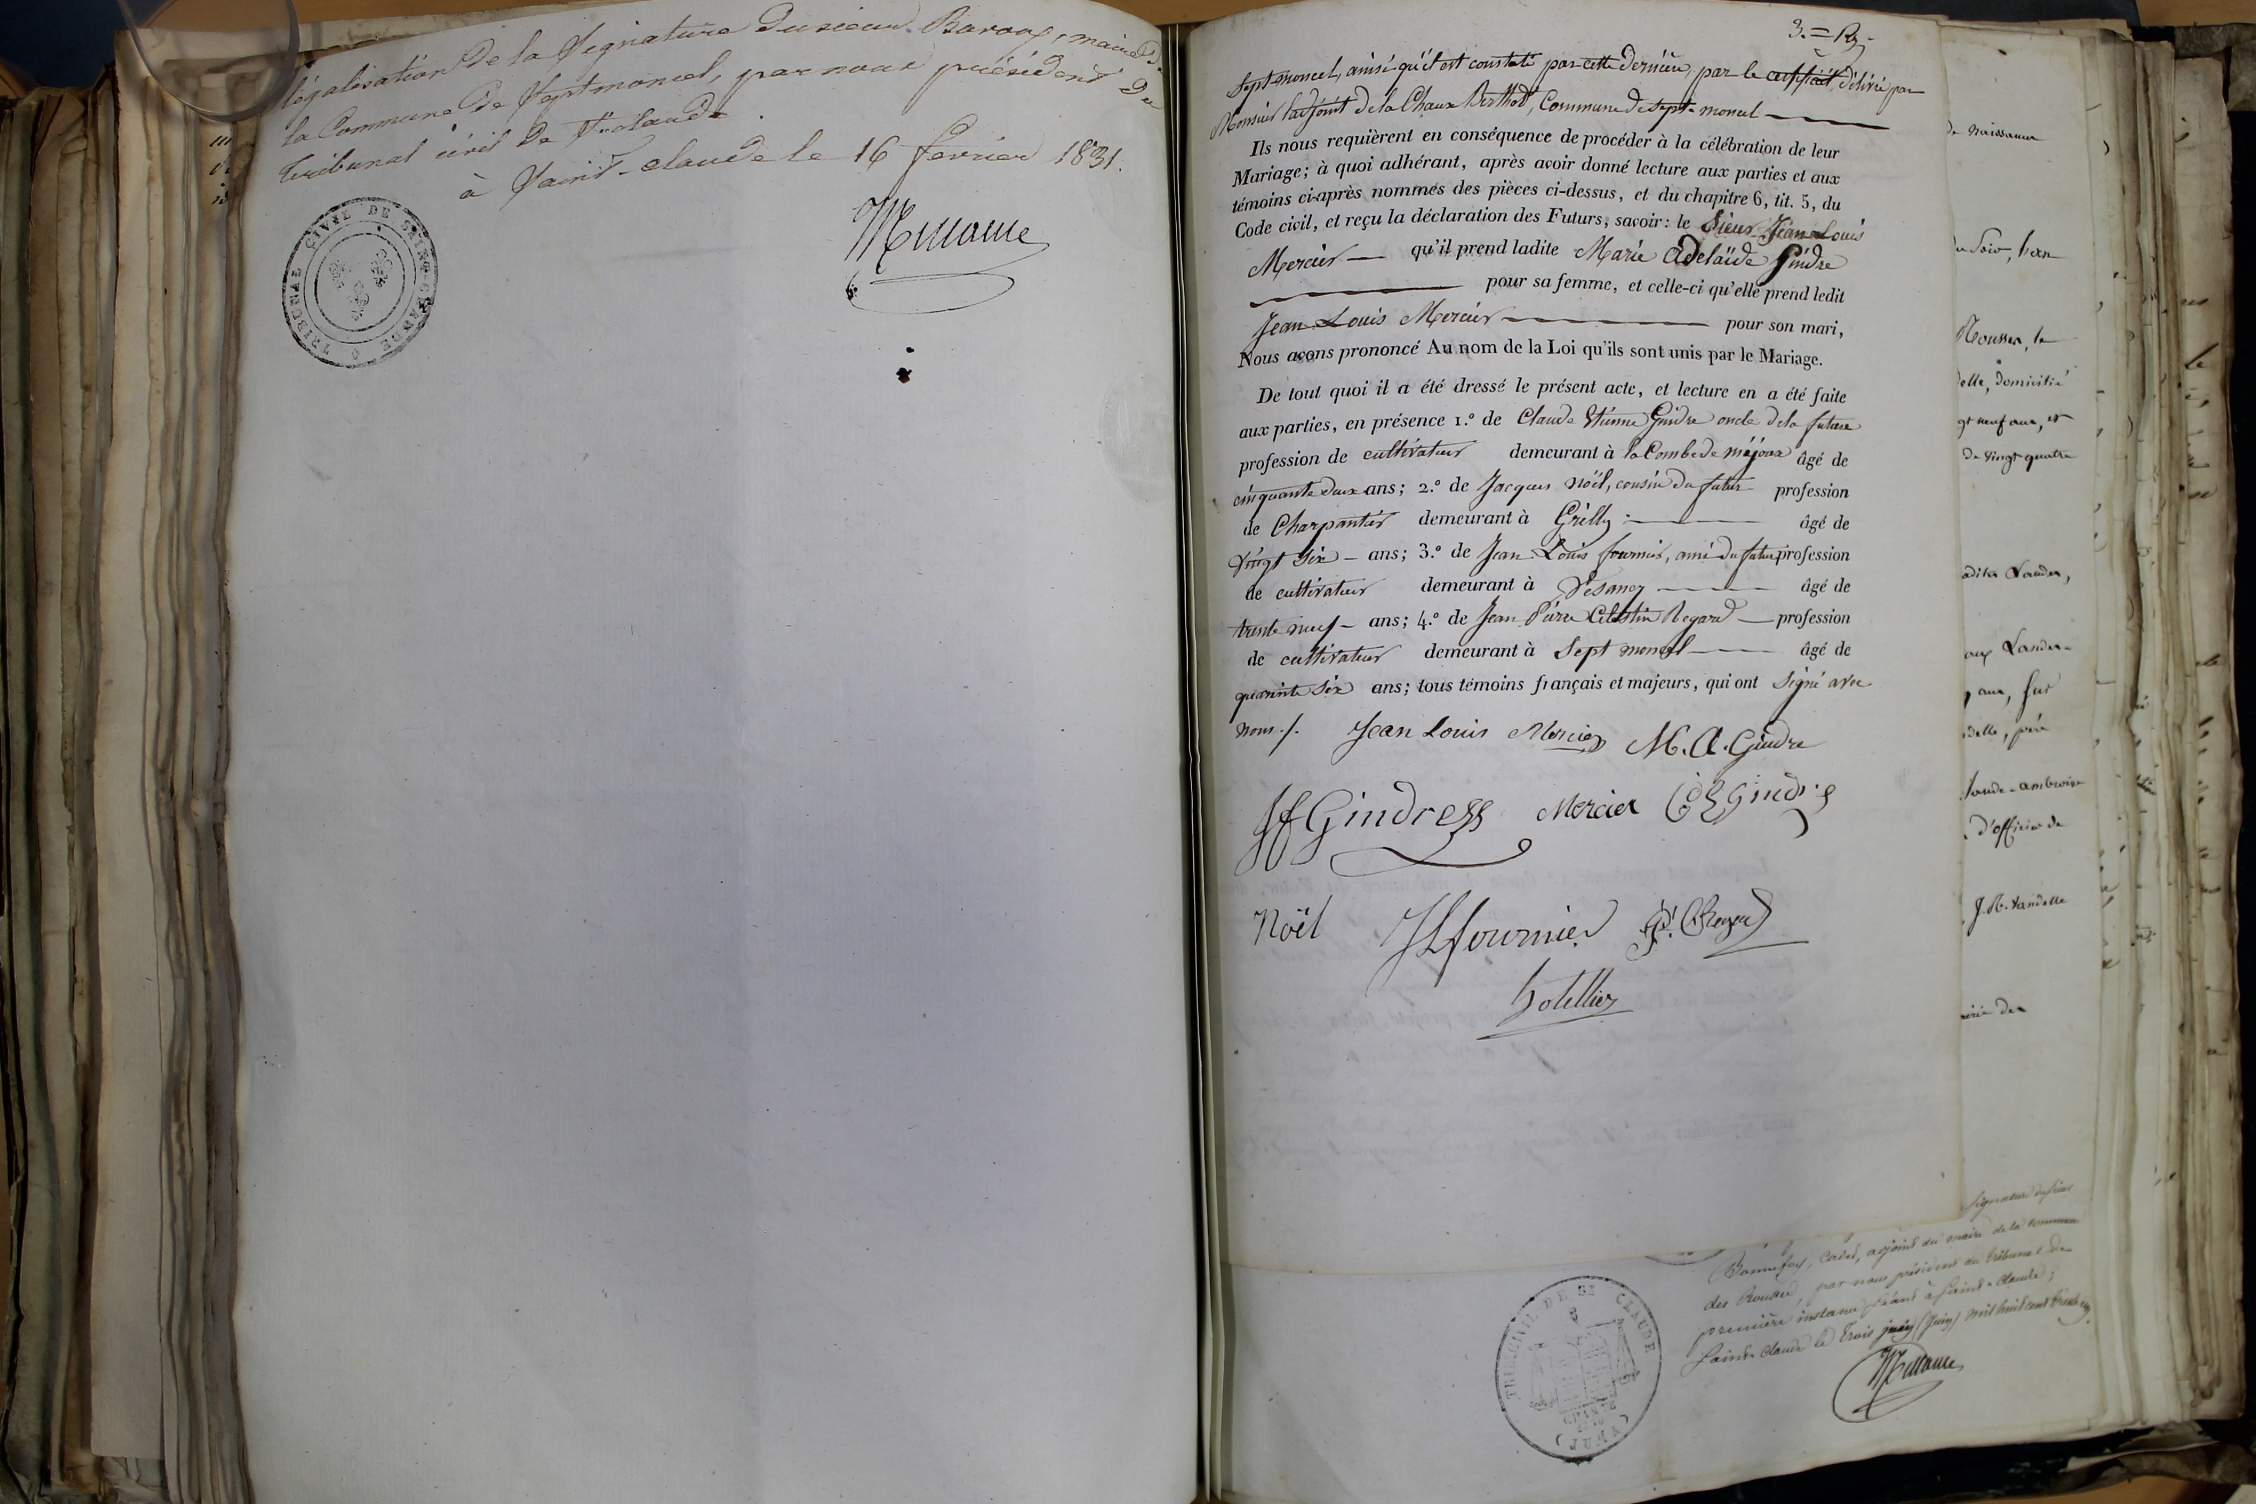 légalisation de la Signature du sieur Baroay, maire de
la Commune de Septmoncel, par nous président du
tribunal civil de St Claude
à Saint-Claude le 16 fevrier 1831.
TRIBUNAL CIVIL DE SAINT-CLAUDE
3.=
Septmoncel, ainsi qu'il est constaté par cette dernière, par le délivré par
Monsieur l'adjoint de la Chaux Berthod, Commune de Sept-moncel
Ils nous requièrent en conséquence de procéder à la célébration de leur
Mariage; à quoi adhérant, après avoir donné lecture aux parties et aux
témoins ci-après nommés des pièces ci-dessus, et du chapitre 6, tit. 5, du
Code civil, et reçu la déclaration des Futurs, savoir: le Sieur Jean Louis
Mercier — qu'il prend ladite Marie Adelaïde Gindre
pour sa femme, et celle-ci qu'elle prend ledit
Jean Louis Mercier — pour son mari,
Nous avons prononcé Au nom de la Loi qu'ils sont unis par le Mariage.
De tout quoi il a été dressé le présent acte, et lecture en a été faite
aux parties, en présence 1.º de Claude Etienne Gindre oncle de la future
profession de cultivateur demeurant à la Combe de mijoux âgé de
cinquante deux ans; 2.º de Jacques Noël, cousin du futur profession
de Charpantier demeurant à Grilly — âgé de
Vingt six — ans; 3.º de Jean Louis fournier, ami du futur profession
de cultivateur demeurant à Vesancy — âgé de
trente neuf — ans; 4.º de Jean Pierre Célestin Regard — profession
de cultivateur demeurant à Sept moncel — âgé de
quarante six ans; tous témoins français et majeurs, qui ont signé avec
nous ./. Jean Louis Mercier M. A. Gindre
Gindre Mercier C E Gindre
Noël JLfournier
de naissance
Rousses, le
delle, domicilié
de vingt quatre
aux Landes
delle, père
Claude-ambroise
d'officier de
J. N. Vandelle
signature du sieur
Bonnefoy, Cadet, adjoint du maire de la commune
des Rousses, par nous président du tribunal de
première instance séant à Saint-Claude;
Saint-Claude le trois juin (juin) mil huit cent trente un.
TRIB. CIVIL DE ST CLAUDE
(JURA)